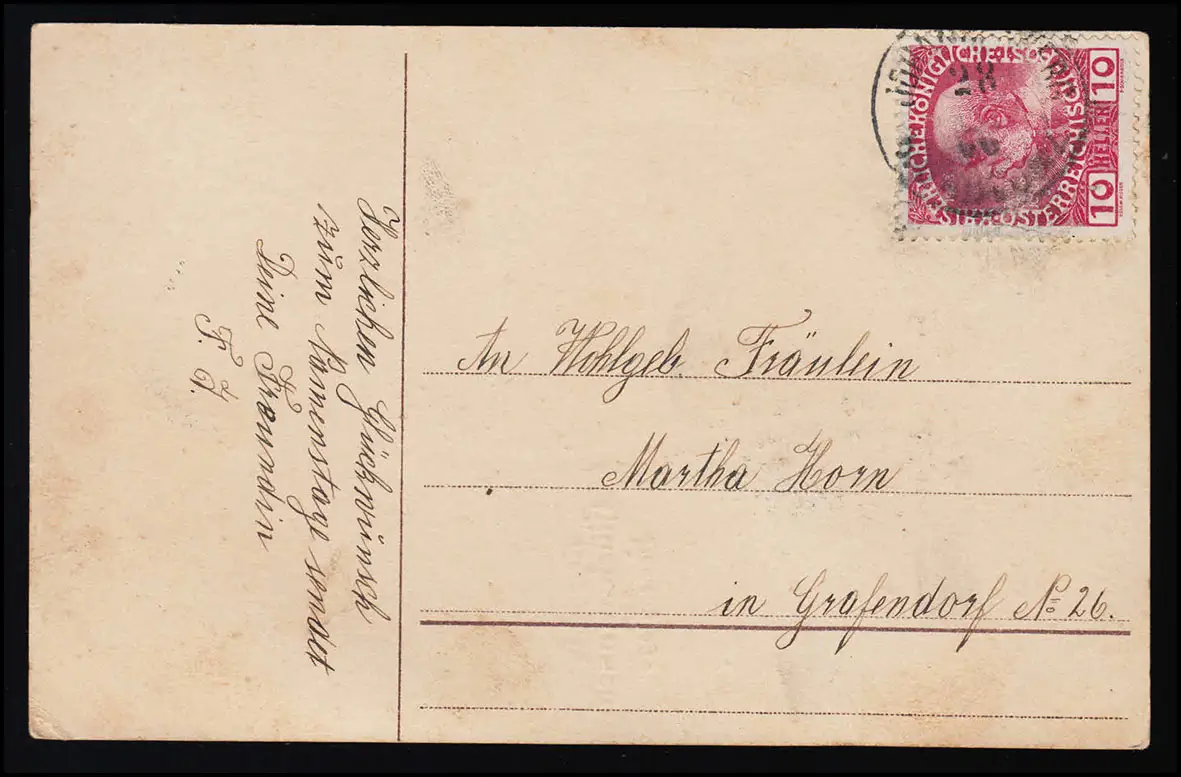 Herzlichen Glückwunsch
zum Namenstage sendet
Deine Freundin
F. J.
An Wohlgeb. Fräulein
Martha Horn
in Grafendorf No 26.
KAISERLICHE KÖNIGLICHE ÖSTERREICHISCHE POST
10 HELLER 10
28